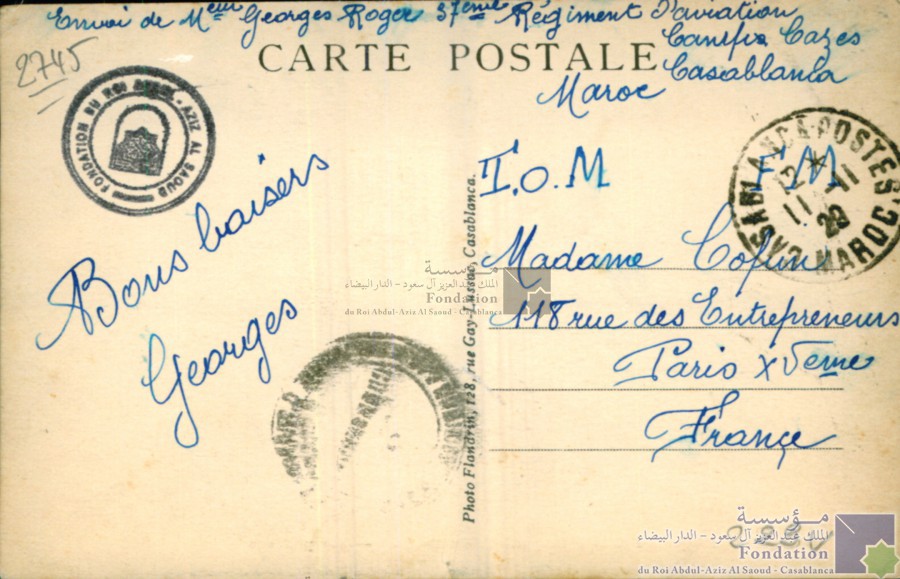 Envoi de Meur Georges Roger 37ème Régiment d'aviation
Cazes
Casablanca
Maroc
CARTE POSTALE
2745
FONDATION DU ROI ABDUL-AZIZ AL SAOUD
I.O.M F M
CASABLANCA-POSTES
12 *
11 - 11
MAROC
Bons baisers
Georges
Madame
118 rue des Entrepreneurs
Paris XVeme
France
Photo Flandrin, 128, rue Gay-Lussac, Casablanca.
مؤسسة
الملك عبد العزيز آل سعود - الدار البيضاء
Fondation
du Roi Abdul-Aziz Al Saoud - Casablanca
مؤسسة
الملك عبد العزيز آل سعود - الدار البيضاء
Fondation
du Roi Abdul-Aziz Al Saoud - Casablanca